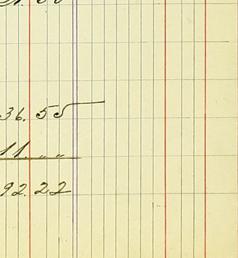 36.55
11. " "
92.22